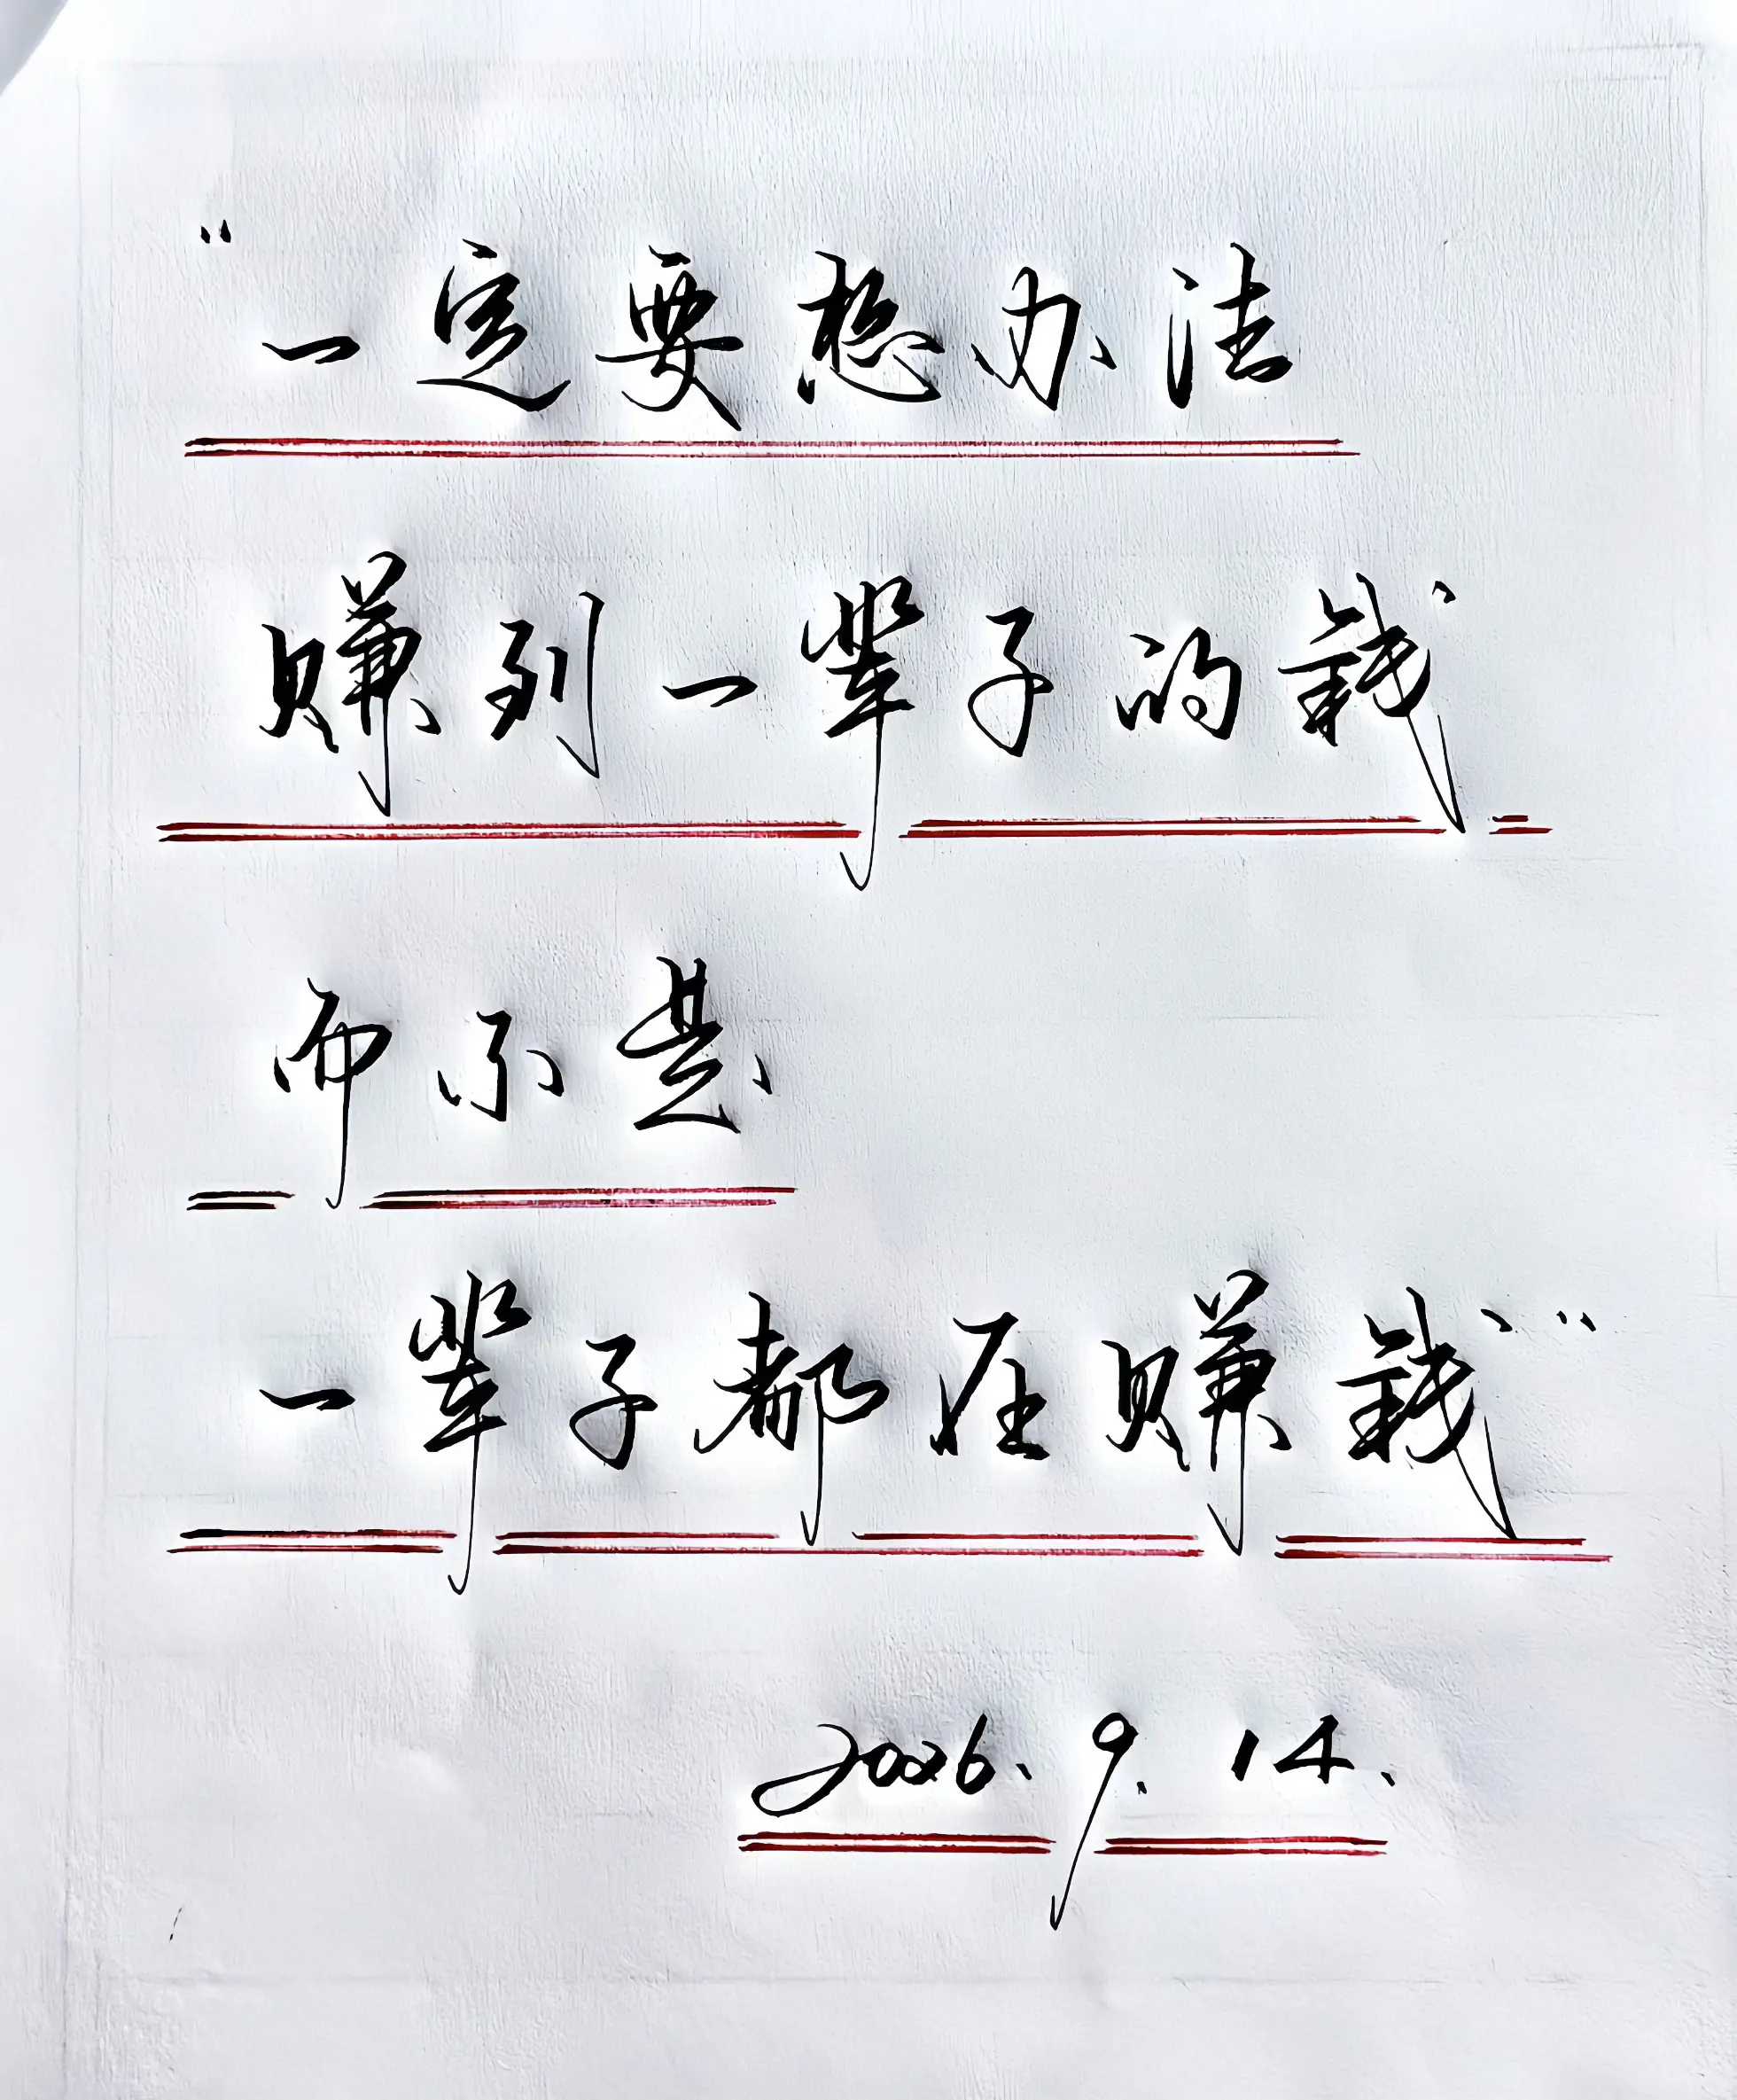 “一定要想办法
賺到一辈子的錢
而不是
一辈子都在賺錢”
2026.9.14.